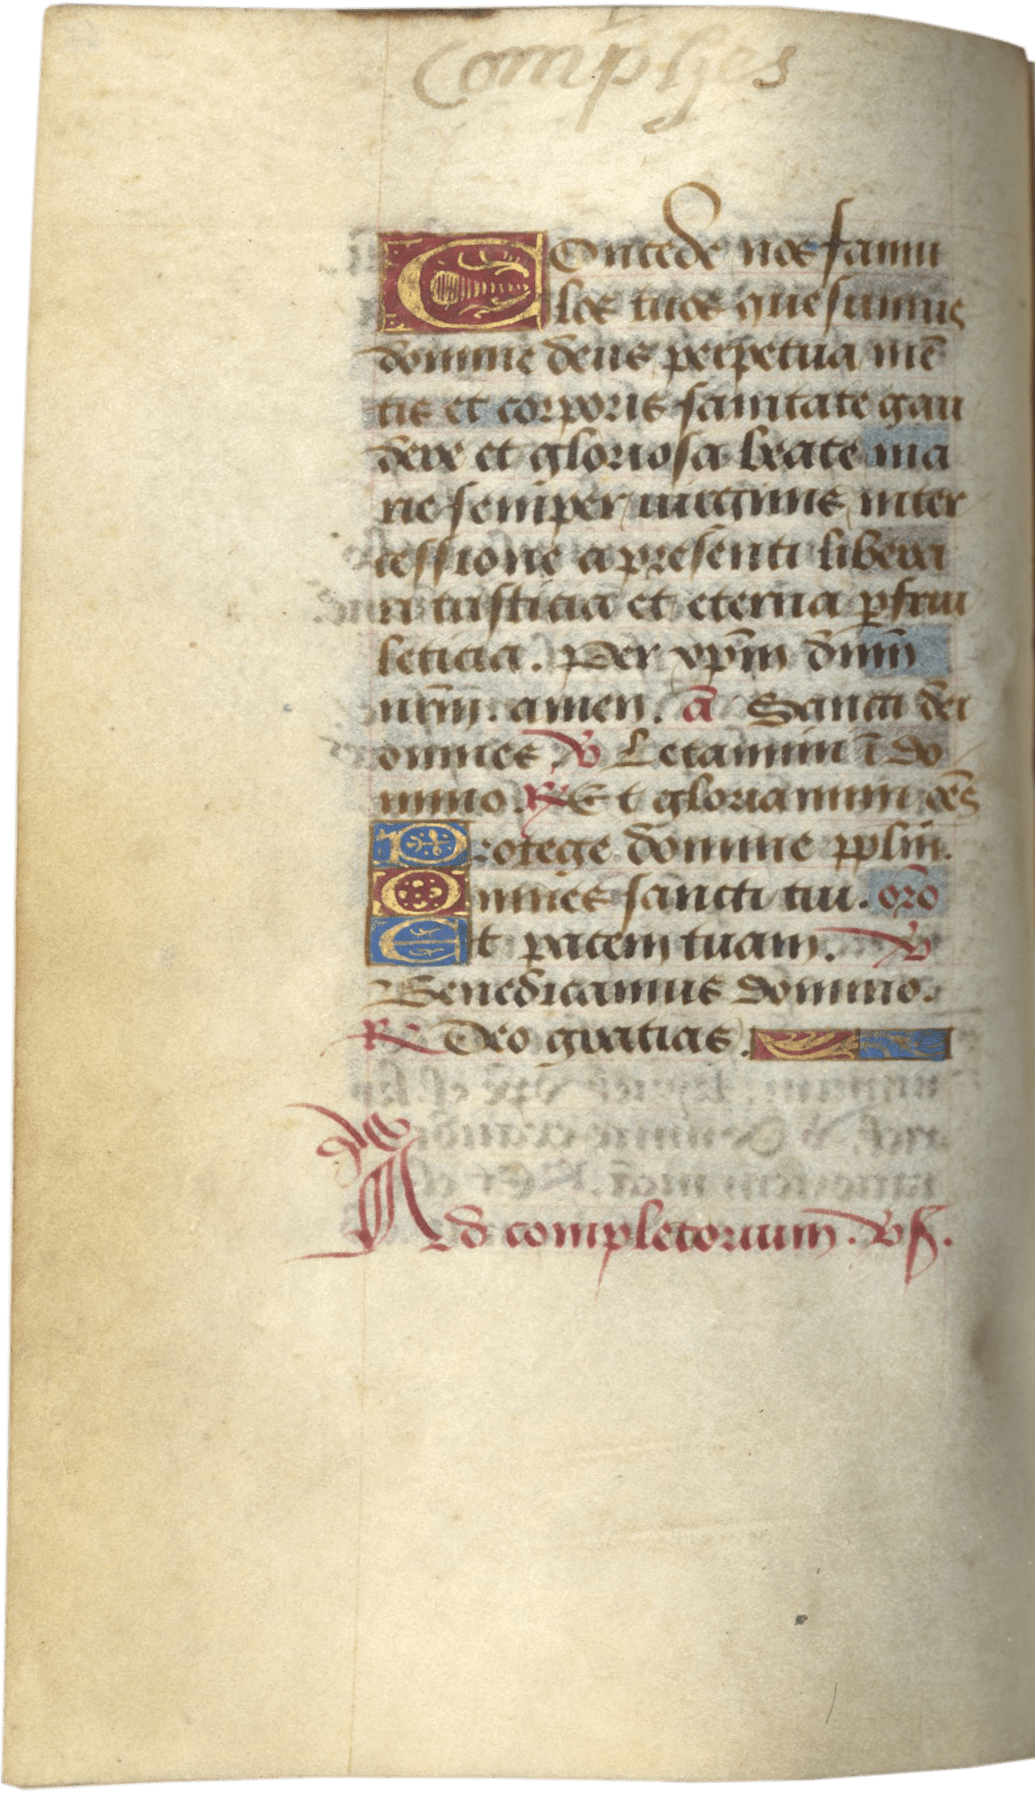 Complyes
Concede nos famu
los tuos quesumus
domine deus perpetua mē
tis et corporis sanitate gau
dere et gloriosa beate ma
rie semper uirginis inter
cessione a presenti libera
ri tristicia et eterna ꝑfrui
leticia. Per xp̄m dn̄m
nr̄m. amen. ā Sancti dei
omnes ℣ Letamini ī do
mino. ℟ Et gloriamini oēs
Protege domine pplm̄.
Omnes sancti tui. or̄o
Et pacem tuam. ℣
Benedicamus domino.
℟ Deo gratias.
Ad completorium. v̄s.